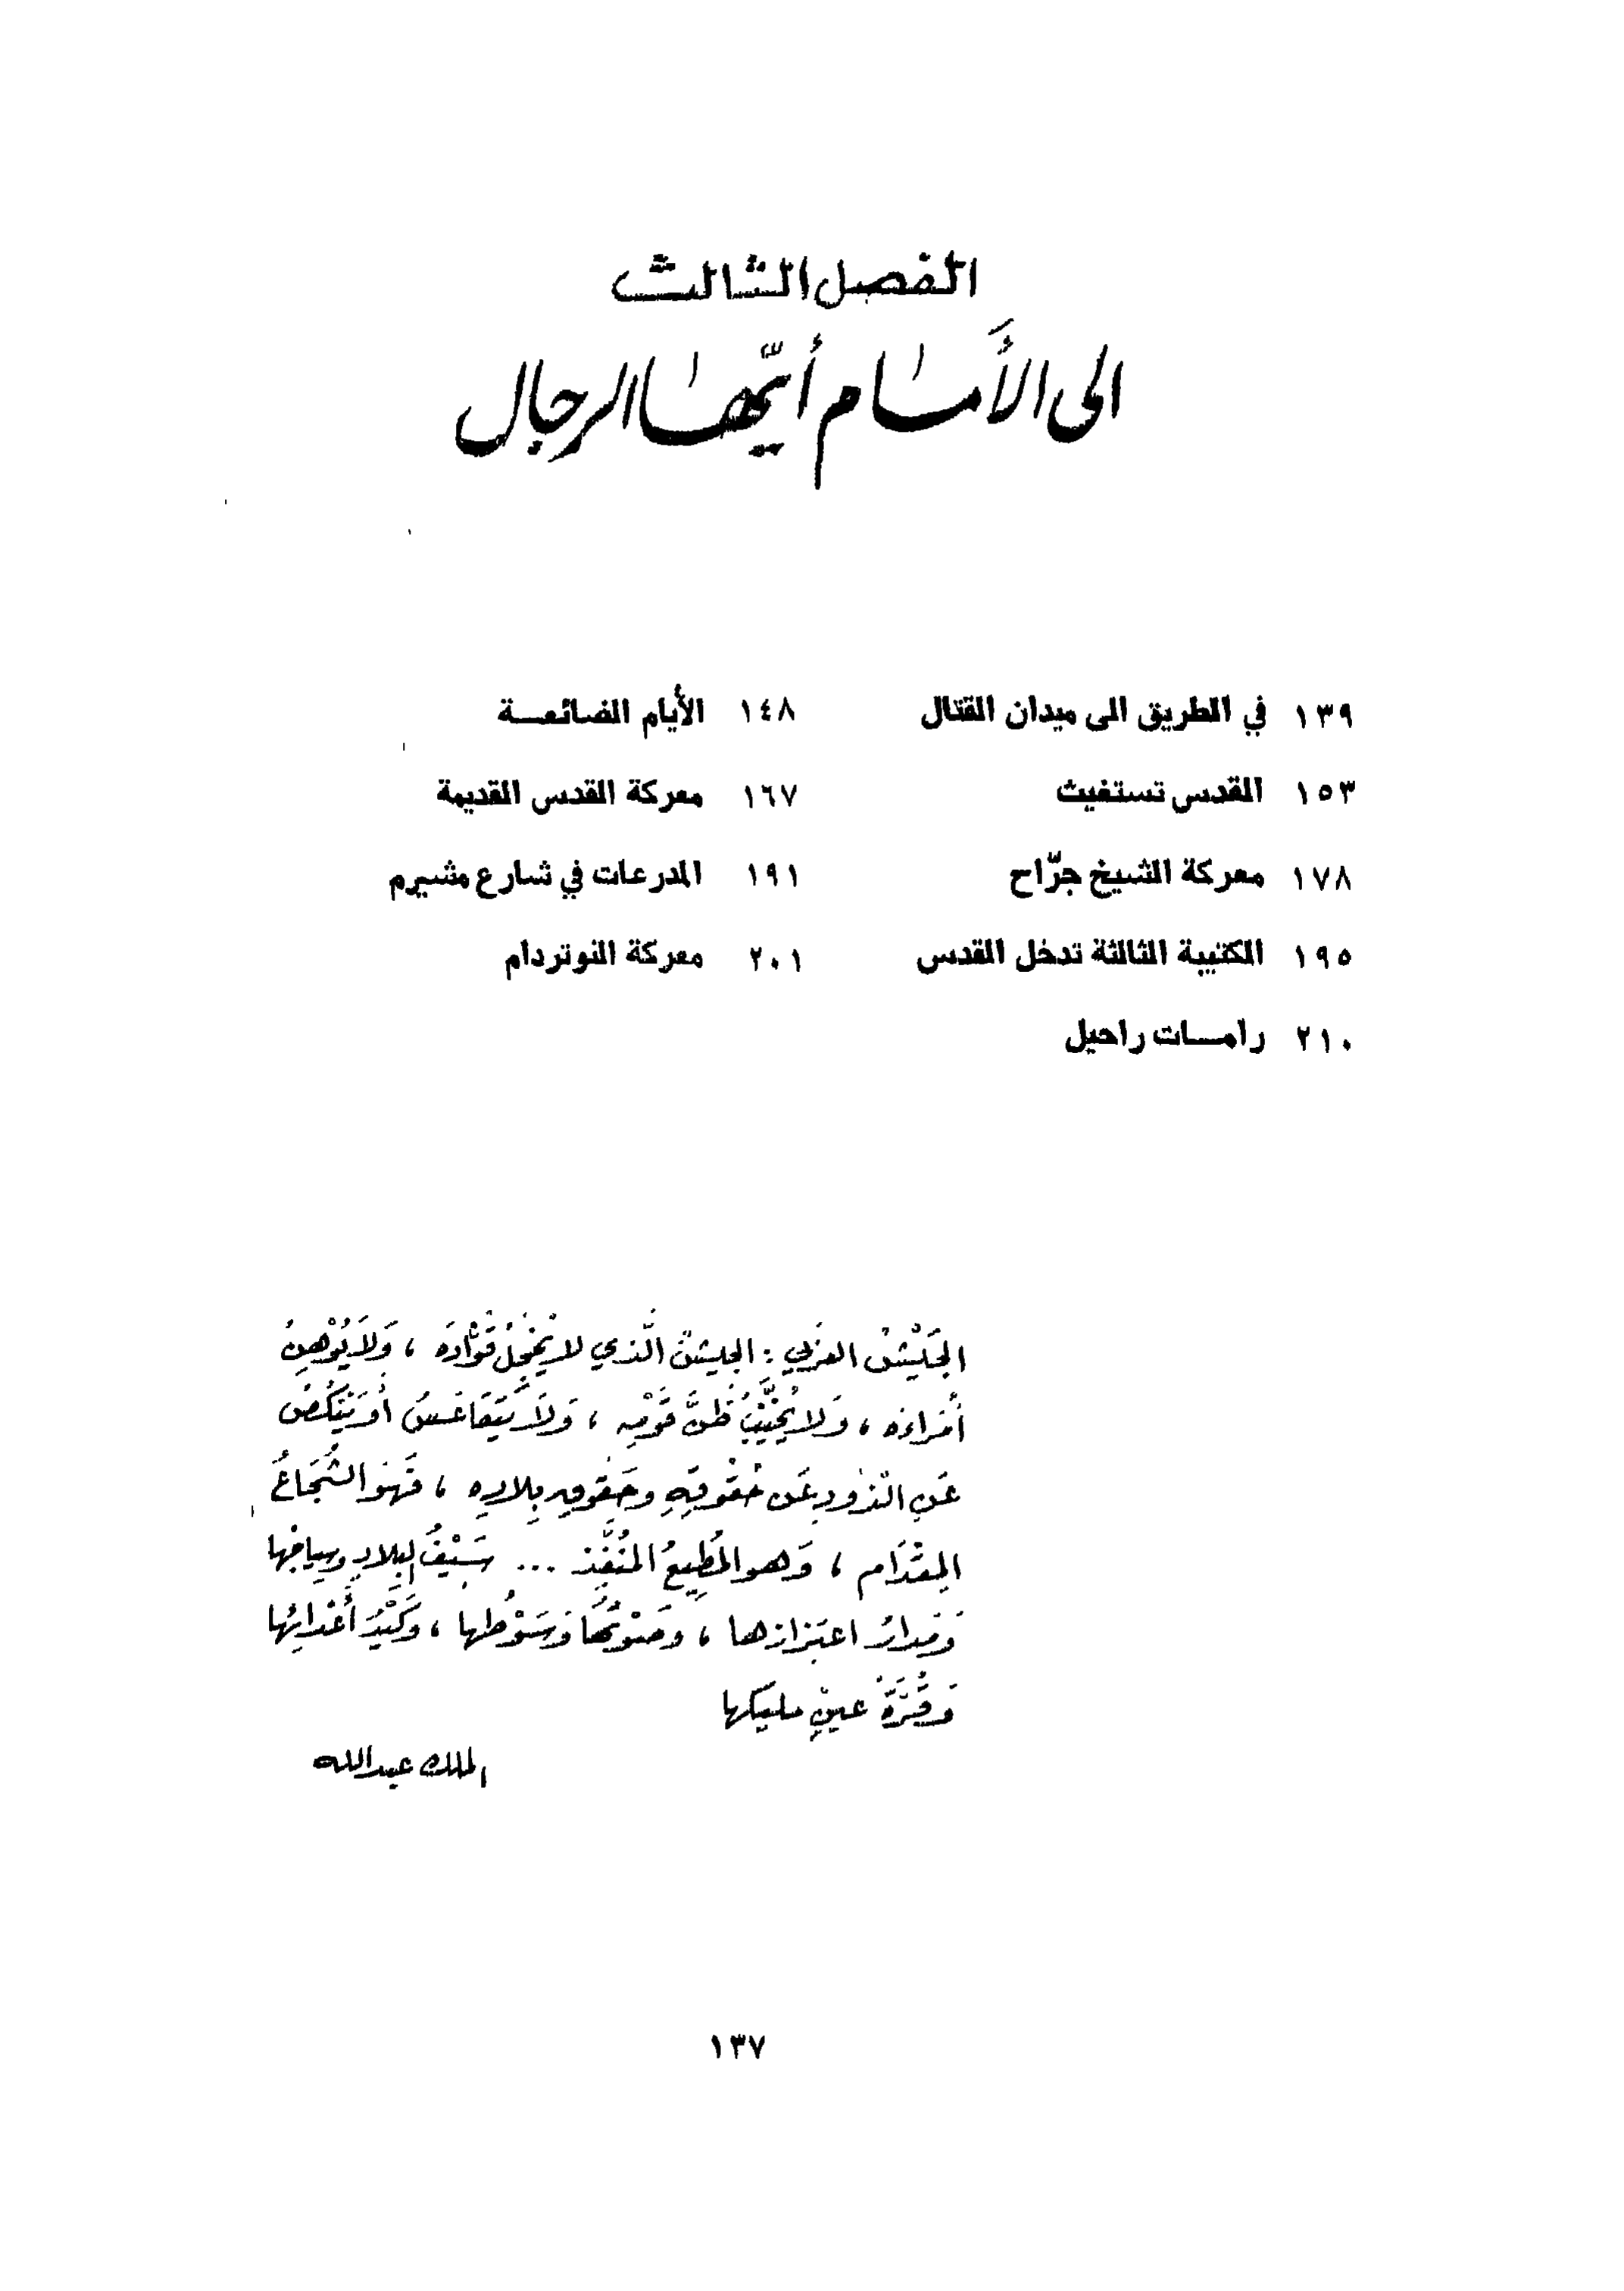 الفصل الثالث
الى الأَمام أيّها الرجال
١٣٩ في الطريق الى ميدان القتال
١٤٨ الأيام الضائعة
١٥٣ القدس تستغيث
١٦٧ معركة القدس القديمة
١٧٨ معركة الشيخ جرّاح
١٩١ المدرعات في شارع مشيرم
١٩٥ الكتيبة الثالثة تدخل القدس
٢٠١ معركة النوتردام
٢١٠ رامات راحيل
الجَيْشُ العَرَبي : الجيشُ الّذي لا يُخْجِلُ قُوّادَه ، وَلاَ يُوْهِنُ
أُمَراءَه ، وَلا يُخَيِّبُ ظَنَّ قَوْمِهِ ، وَلاَ يَتَقَاعَسُ أو يَنكُصُ
عَنِ الذَودِ عَن حُقُوقِهِ وحُقوقِ بِلادِهِ ، فَهوَ الشُجَاعُ
المِقْدَام ، وَهو المُطِيعُ المُنَفِّذ ... سَيْفُ البِلادِ وسِياجُها
وَمَدارُ اعتِزازها ، وصَوْتُها وَسَوْطُها ، وَكَيْدُ أَعْدائِها
وَقُرَّةُ عينِ مليكها
الملك عبدالله
١٣٧